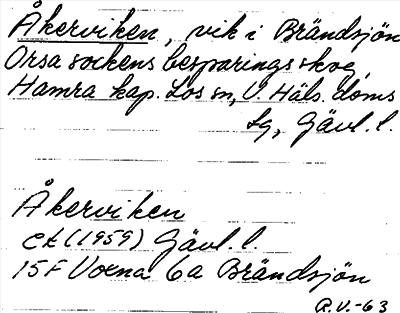 Åkerviken, vik i Brändsjön
Orsa sockens besparingsskog,
Hamra kap. Los sn, V. Häls. doms
sg, Gävl. l.
Åkerviken
ek (1959) Gävl. l.
15F Voxna 6a Brändsjön
R.V.-63